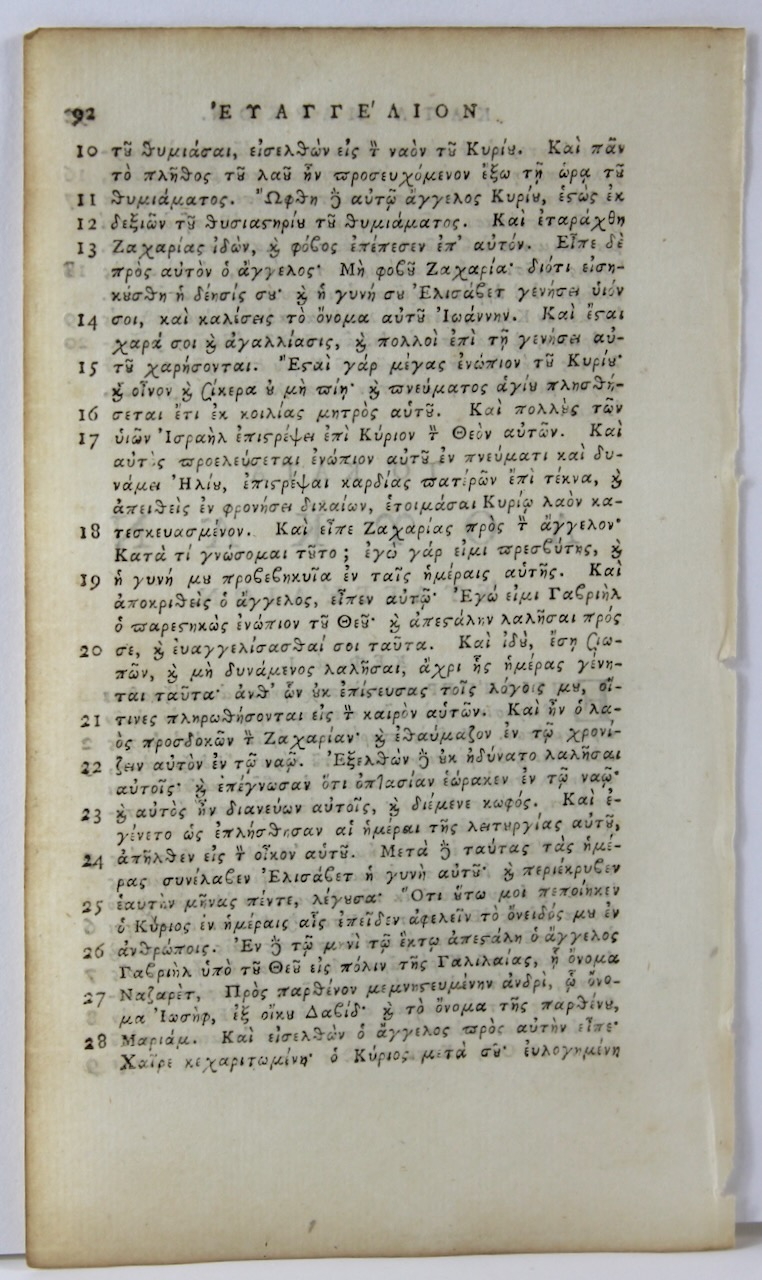 92 ἘΥΑΓΓΕ΄ΛΙΟΝ
10 τȣ͂ θυμιάσαι, εἰσελθὼν εἰς τ̀ ναὸν τȣ͂ Κυρίȣ. Καὶ πᾶν
τὸ πλῆθος τȣ͂ λαȣ͂ ἦν ϖροσευχόμενον ἔξω τῇ ὥρᾳ τȣ͂
11 θυμιάματος. Ὤφθη δ̀ αὐτῷ ἄγγελος Κυρίȣ, ἑϛὼς ἐκ
12 δεξιῶν τȣ͂ θυσιαϛηρίȣ τȣ͂ θυμιάματος. Καὶ ἐταράχθη
13 Ζαχαρίας ἰδὼν, ϗ̀ φόβος ἐπέπεσεν ἐπ’ αὐτόν. Εἶπε δὲ
πρὸς αὐτὸν ὁ ἄγγελος· Μὴ φοβȣ͂ Ζαχαρία· διότι εἰση-
κȣ́σθη ἡ δέησίς σȣ· ϗ̀ ἡ γυνή σȣ Ἐλισάβετ γενήσει υἱόν
14 σοι, καὶ καλέσεις τὸ ὄνομα αὐτȣ͂ Ἰωάννην. Καὶ ἔϛαι
χαρά σοι ϗ̀ ἀγαλλίασις, ϗ̀ πολλοὶ ἐπὶ τῇ γενήσει αὐ-
15 τȣ͂ χαρήσονται. Ἔϛαὶ γάρ μέγας ἐνώπιον τȣ͂ Κυρίȣ·
ϗ̀ οἶνον ϗ̀ σίκερα ȣ̓ μὴ ϖίῃ· ϗ̀ ϖνεύματος ἁγίȣ πλησθή-
16 σεται ἔτι ἐκ κοιλίας μητρὸς αὑτȣ͂. Καὶ πολλȣ̀ς τῶν
17 υἱῶν Ἰσραὴλ ἐπιϛρέψει ἐπὶ Κύριον τ̀ Θεὸν αὐτῶν. Καὶ
αὐτὸς ϖροελεύσεται ἐνώπιον αὐτȣ͂ ἐν πνεύματι καὶ δυ-
νάμει Ἠλίȣ, ἐπιϛρέψαι καρδίας ϖατέρων ἔπὶ τέκνα, ϗ̀
ἀπειθεὶς ἐν φρονήσει δικαίων, ἑτοιμάσαι Κυρίῳ λαὸν κα-
18 τεσκευασμένον. Καὶ εἶπε Ζαχαρίας πρὸς τ̀ ἄγγελον·
Κατὰ τί γνώσομαι τȣ͂το; ἐγὼ γάρ εἰμι ϖρεσβύτης, ϗ̀
19 ἡ γυνή μȣ προβεβηκυῖα ἐν ταῖς ἡμέραις αὑτῆς. Καὶ
ἀποκριθεὶς ὁ ἄγγελος, εἶπεν αὐτῷ· Ἐγώ εἰμι Γαβριὴλ
ὁ ϖαρεϛηκὼς ἐνώπιον τȣ͂ Θεȣ͂· ϗ̀ ἀπεϛάλην λαλῆσαι πρός
20 σε, ϗ̀ ἐυαγγελίσασθαί σοι ταῦτα. Καὶ ἰδȣ̀, ἔσῃ σιω-
πῶν, ϗ̀ μὴ δυνάμενος λαλῆσαι, ἄχρι ἧς ἡμέρας γένη-
ται ταῦτα· ἀνθ’ ὧν ȣ̓κ ἐπίϛευσας τοῖς λόγοις μȣ, οἵ-
21 τινες πληρωθήσονται εἰς τ̀ καιρὸν αὑτῶν. Καὶ ἦν ὁ λα-
ὸς προσδοκῶν τ̀ Ζαχαρίαν· ϗ̀ ἐθαύμαζον ἐν τῷ χρονί-
22 ζειν αὐτὸν ἐν τῷ ναῷ. Ἐξελθὼν δ̀ ȣ̓κ ἠδύνατο λαλῆσαι
αὐτοῖς· ϗ̀ ἐπέγνωσαν ὅτι ὀπτασίαν ἑώρακεν ἐν τῷ ναῷ·
23 ϗ̀ αὐτὸς ἦν διανεύων αὐτοῖς, ϗ̀ διέμενε κωφός. Καὶ ἐ-
γένετο ὡς ἐπλήσθησαν αἱ ἡμέραι τῆς λειτȣργίας αὐτȣ͂,
24 ἀπῆλθεν εἰς τ̀ οἶκον αὑτȣ͂. Μετὰ δ̀ ταύτας τὰς ἡμέ-
ρας συνέλαβεν Ἐλισάβετ ἡ γυνὴ αὐτȣ͂· ϗ̀ περιέκρυβεν
25 ἑαυτὴν μῆνας πέντε, λέγȣσα· Ὅτι ȣ̔́τω μοι πεποίηκεν
ὁ Κύριος ἐν ἡμέραις αἷς ἐπεῖδεν ἀφελεῖν τὸ ὄνειδός μȣ ἐν
26 ἀνθρώποις. Ἐν δ̀ τῷ μηνὶ τῷ ἕκτῳ ἀπεϛάλη ὁ ἄγγελος
Γαβριὴλ ὑπὸ τȣ͂ Θεȣ͂ εἰς πόλιν τῆς Γαλιλαίας, ᾗ ὄνομα
27 Ναζαρὲτ, Πρὸς παρθένον μεμνηϛευμένην ἀνδρὶ, ᾧ ὄνο-
μα Ἰωσὴφ, ἐξ οἴκȣ Δαβίδ· ϗ̀ τὸ ὄνομα τῆς παρθένȣ,
28 Μαριάμ. Καὶ εἰσελθὼν ὁ ἄγγελος ϖρὸς αὐτὴν εἶπε·
Χαῖρε κεχαριτωμένη· ὁ Κύριος μετὰ σȣ͂· ἐυλογημένη